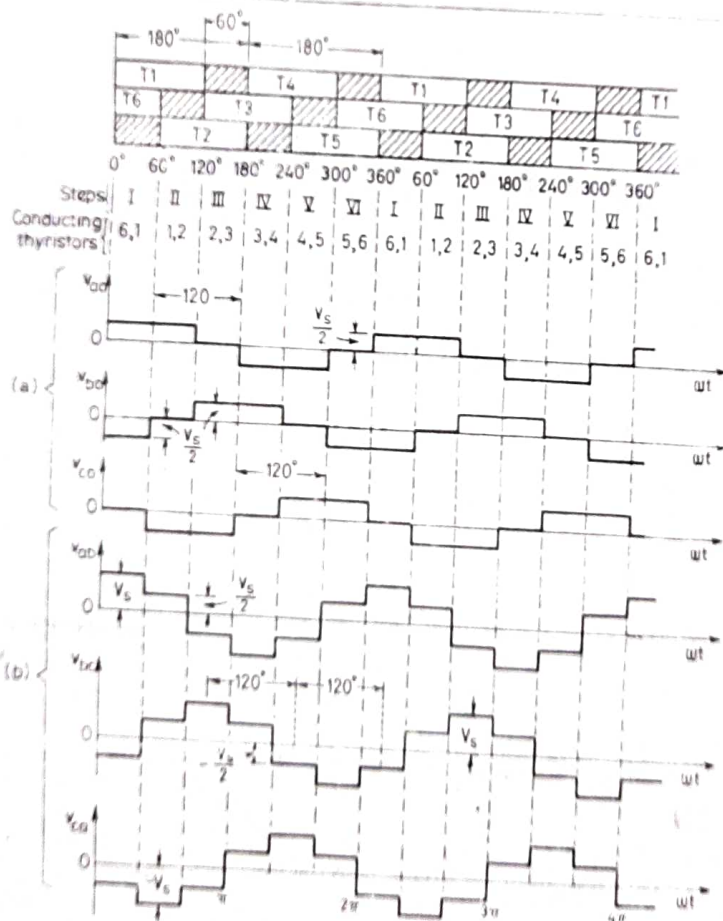 60°
180° 180°
T1 T4 T1 T4 T1
T6 T3 T6 T3 T6
T2 T5 T2 T5
0° 60° 120° 180° 240° 300° 360° 60° 120° 180° 240° 300° 360°
Steps I II III IV V VI I II III IV V VI I
Conducting thyristors 6,1 1,2 2,3 3,4 4,5 5,6 6,1 1,2 2,3 3,4 4,5 5,6 6,1
(a)
vao
120
Vs/2
0
ωt
vbo
0
Vs/2
ωt
vco
120°
0
ωt
(b)
vab
Vs
Vs/2
0
ωt
vbc
120° 120°
0
-Vs/2
Vs
ωt
vca
0
-Vs
π 2π 3π 4π
ωt